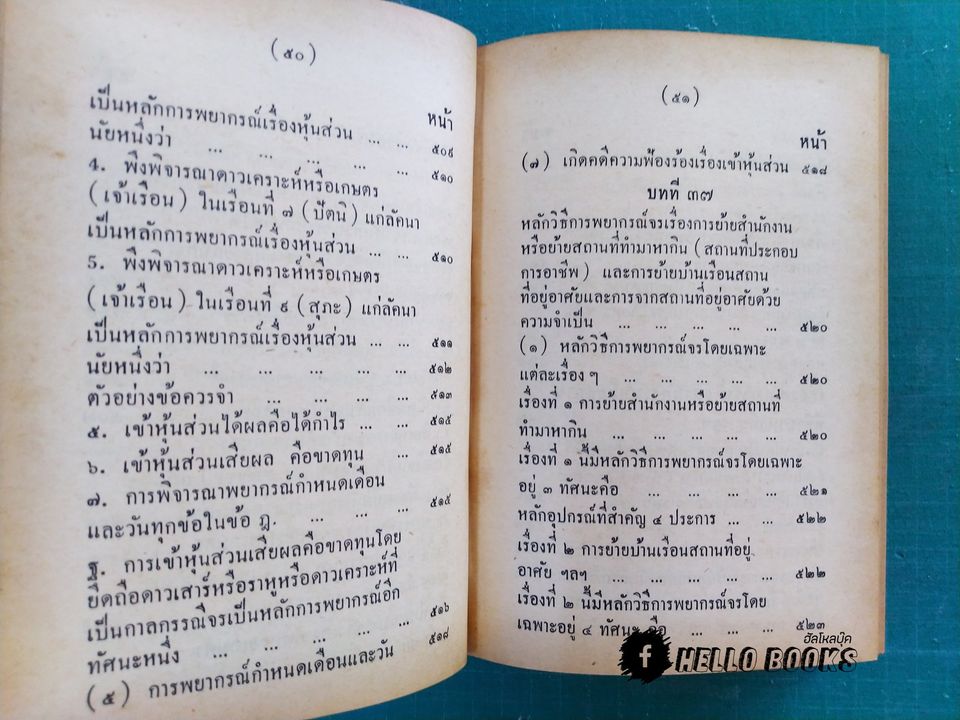 (๕๐)
หน้า
เป็นหลักการพยากรณ์เรื่องหุ้นส่วน ... ... ๕๐๙
นัยหนึ่งว่า ... ... ... ... ๕๑๐
4. พึงพิจารณาดาวเคราะห์หรือเกษตร
(เจ้าเรือน) ในเรือนที่ ๗ (ปัตนิ) แก่ลัคนา
เป็นหลักการพยากรณ์เรื่องหุ้นส่วน ... ... ๕๑๐
5. พึงพิจารณาดาวเคราะห์หรือเกษตร
(เจ้าเรือน) ในเรือนที่ ๙ (สุภะ) แก่ลัคนา
เป็นหลักการพยากรณ์เรื่องหุ้นส่วน ... ... ๕๑๑
นัยหนึ่งว่า ... ... ... ... ... ๕๑๒
ตัวอย่างข้อควรจำ ... ... ... ... ๕๑๓
๕. เข้าหุ้นส่วนได้ผลคือได้กำไร ... ... ๕๑๕
๖. เข้าหุ้นส่วนเสียผล คือขาดทุน ... ๕๑๕
๗. การพิจารณาพยากรณ์กำหนดเดือน
และวันทุกข้อในข้อ ฎ. ... ... ... ๕๑๕
ฐ. การเข้าหุ้นส่วนเสียผลคือขาดทุนโดย
ยึดถือดาวเสาร์หรือราหูหรือดาวเคราะห์ที่
เป็นกาลกรรณีจรเป็นหลักการพยากรณ์อีก
ทัศนะหนึ่ง ... ... ... ... ... ๕๑๖
(๕) การพยากรณ์กำหนดเดือนและวัน ๕๑๘
(๕๑)
หน้า
(๗) เกิดคดีความฟ้องร้องเรื่องเข้าหุ้นส่วน ๕๑๘
บทที่ ๓๗
หลักวิธีการพยากรณ์จรเรื่องการย้ายสำนักงาน
หรือย้ายสถานที่ทำมาหากิน (สถานที่ประกอบ
การอาชีพ) และการย้ายบ้านเรือนสถาน
ที่อยู่อาศัยและการจากสถานที่อยู่อาศัยด้วย
ความจำเป็น ... ... ... ... ... ๕๒๐
(๑) หลักวิธีการพยากรณ์จรโดยเฉพาะ
แต่ละเรื่อง ๆ ... ... ... ... ... ๕๒๐
เรื่องที่ ๑ การย้ายสำนักงานหรือย้ายสถานที่
ทำมาหากิน ... ... ... ... ... ๕๒๐
เรื่องที่ ๑ นี้มีหลักวิธีการพยากรณ์จรโดยเฉพาะ
อยู่ ๓ ทัศนะคือ ... ... ... ... ๕๒๑
หลักอุปกรณ์ที่สำคัญ ๔ ประการ ... ... ๕๒๒
เรื่องที่ ๒ การย้ายบ้านเรือนสถานที่อยู่
อาศัย ฯลฯ ... ... ... ... ... ๕๒๒
เรื่องที่ ๒ นี้มีหลักวิธีการพยากรณ์จรโดย
เฉพาะอยู่ ๔ ทัศนะ คือ ... ... ... ๕๒๓
ฮัลโหลบุ๊ค
f HELLO BOOKS